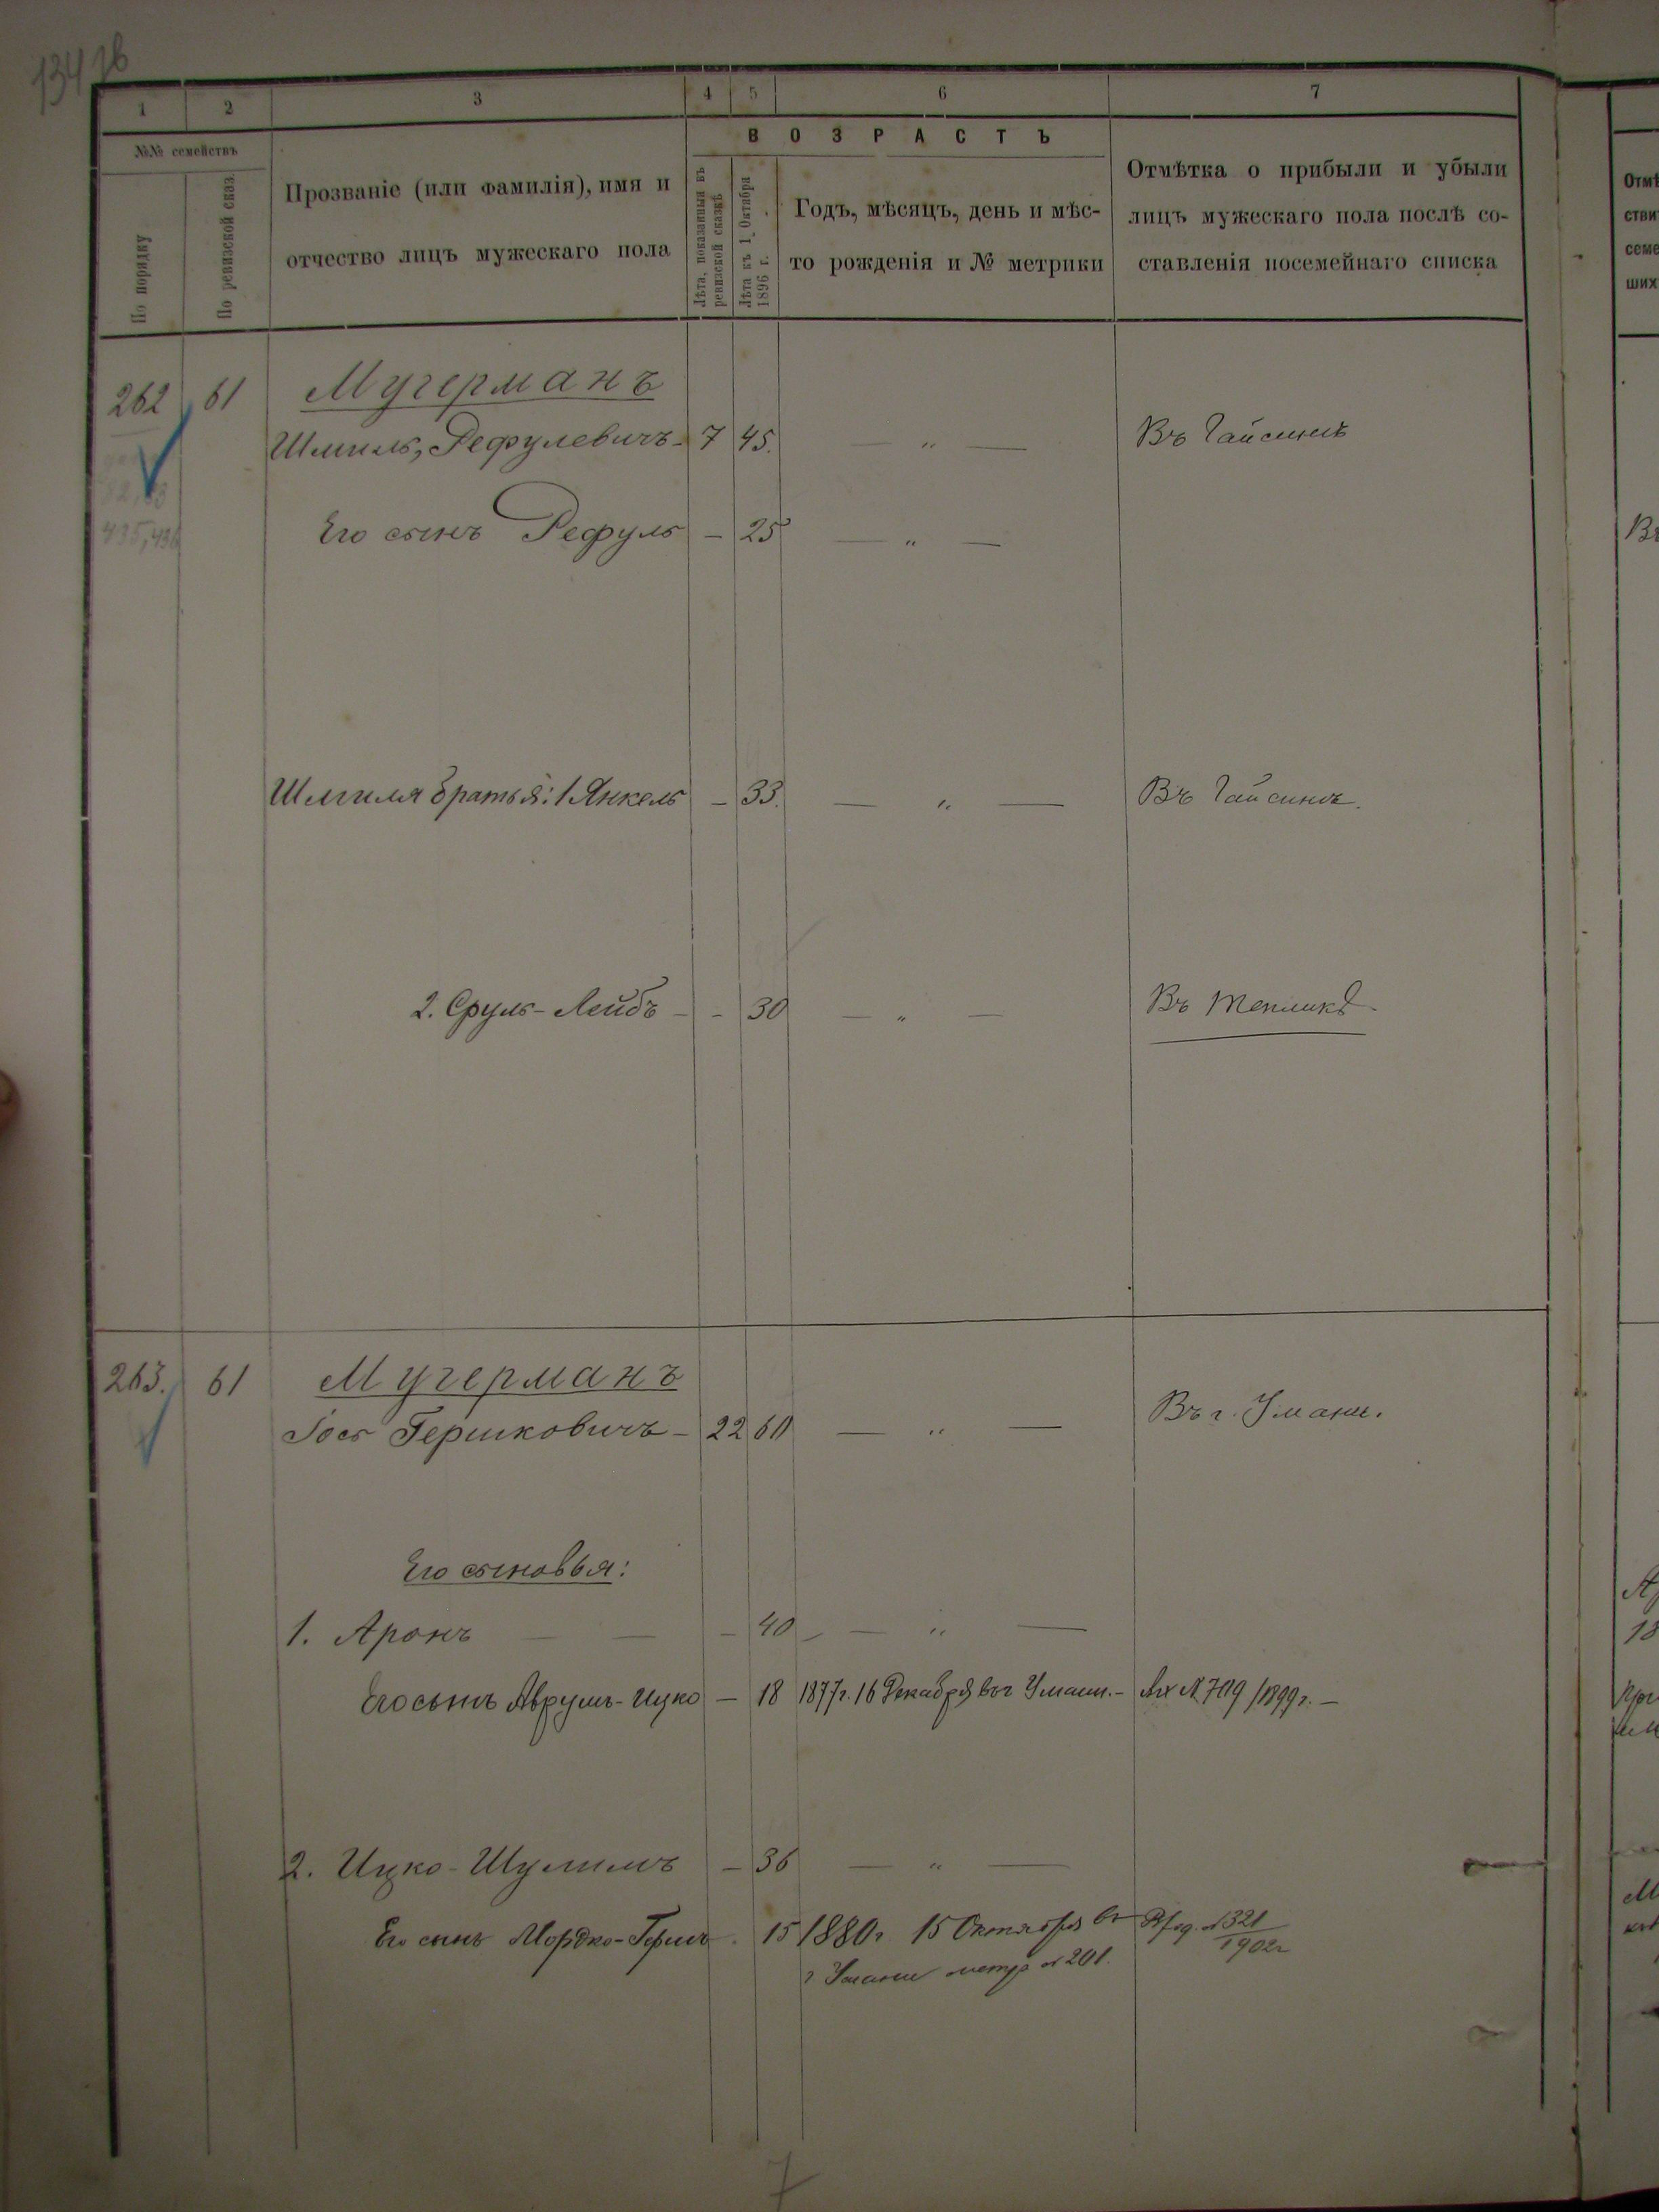 134 зв
1 2 3 4 5 6 7
№№ семействъ
По порядку
По ревизской сказ
Прозваніе (или фамилія), имя и
отчество лицъ мужескаго пола
ВОЗРАСТЪ
Лѣта, показанныя въ
ревизской сказкѣ
Лѣта къ 1 Октября
1896 г.
Годъ, мѣсяцъ, день и мѣс-
то рожденія и № метрики
Отмѣтка о прибыли и убыли
лицъ мужескаго пола послѣ со-
ставленія посемейнаго списка
262 61 Мугерманъ
Шмиль, Рефулевичъ - 7 45. — „ — Въ Гайсинѣ
435, 436
Его сынъ Рефуль — 25 — „ —
Шмиля братья: 1 Янкель — 33. — „ — Въ Гайсинѣ.
2. Сруль-Лейбъ - - 30 — „ — Въ Тепликѣ
263. 61 Мугерманъ
Іось Гершковичъ - 22 60 — „ — Въ г. Умани.
Его сыновья:
1. Аронъ — — — 40 — „ —
Его сынъ Аврумъ-Ицко — 18 1877г. 16 Декабря въ г Умани. — № 709/1899г. —
2. Ицко-Шулимъ — 36 — „ —
Его сынъ Мордко-Герш 15 1880г 15 Октября въ 1321
г Умани метр № 201. 1902г
7